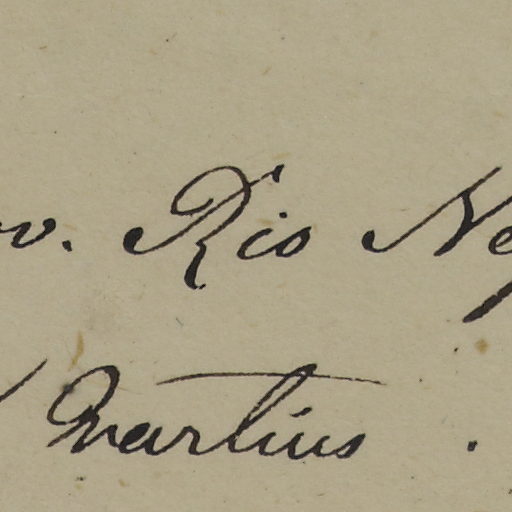 v. Rio Neg
Martius.